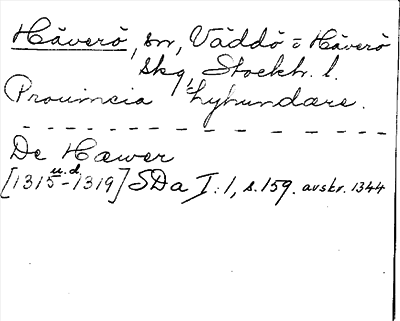 Häverö, sn, Väddö o Häverö
skg, Stockh. l.
Provincia Lyhundære.
De Hæwer
[1315 u.d. -1319] SDa I:1, s.159. avskr. 1344